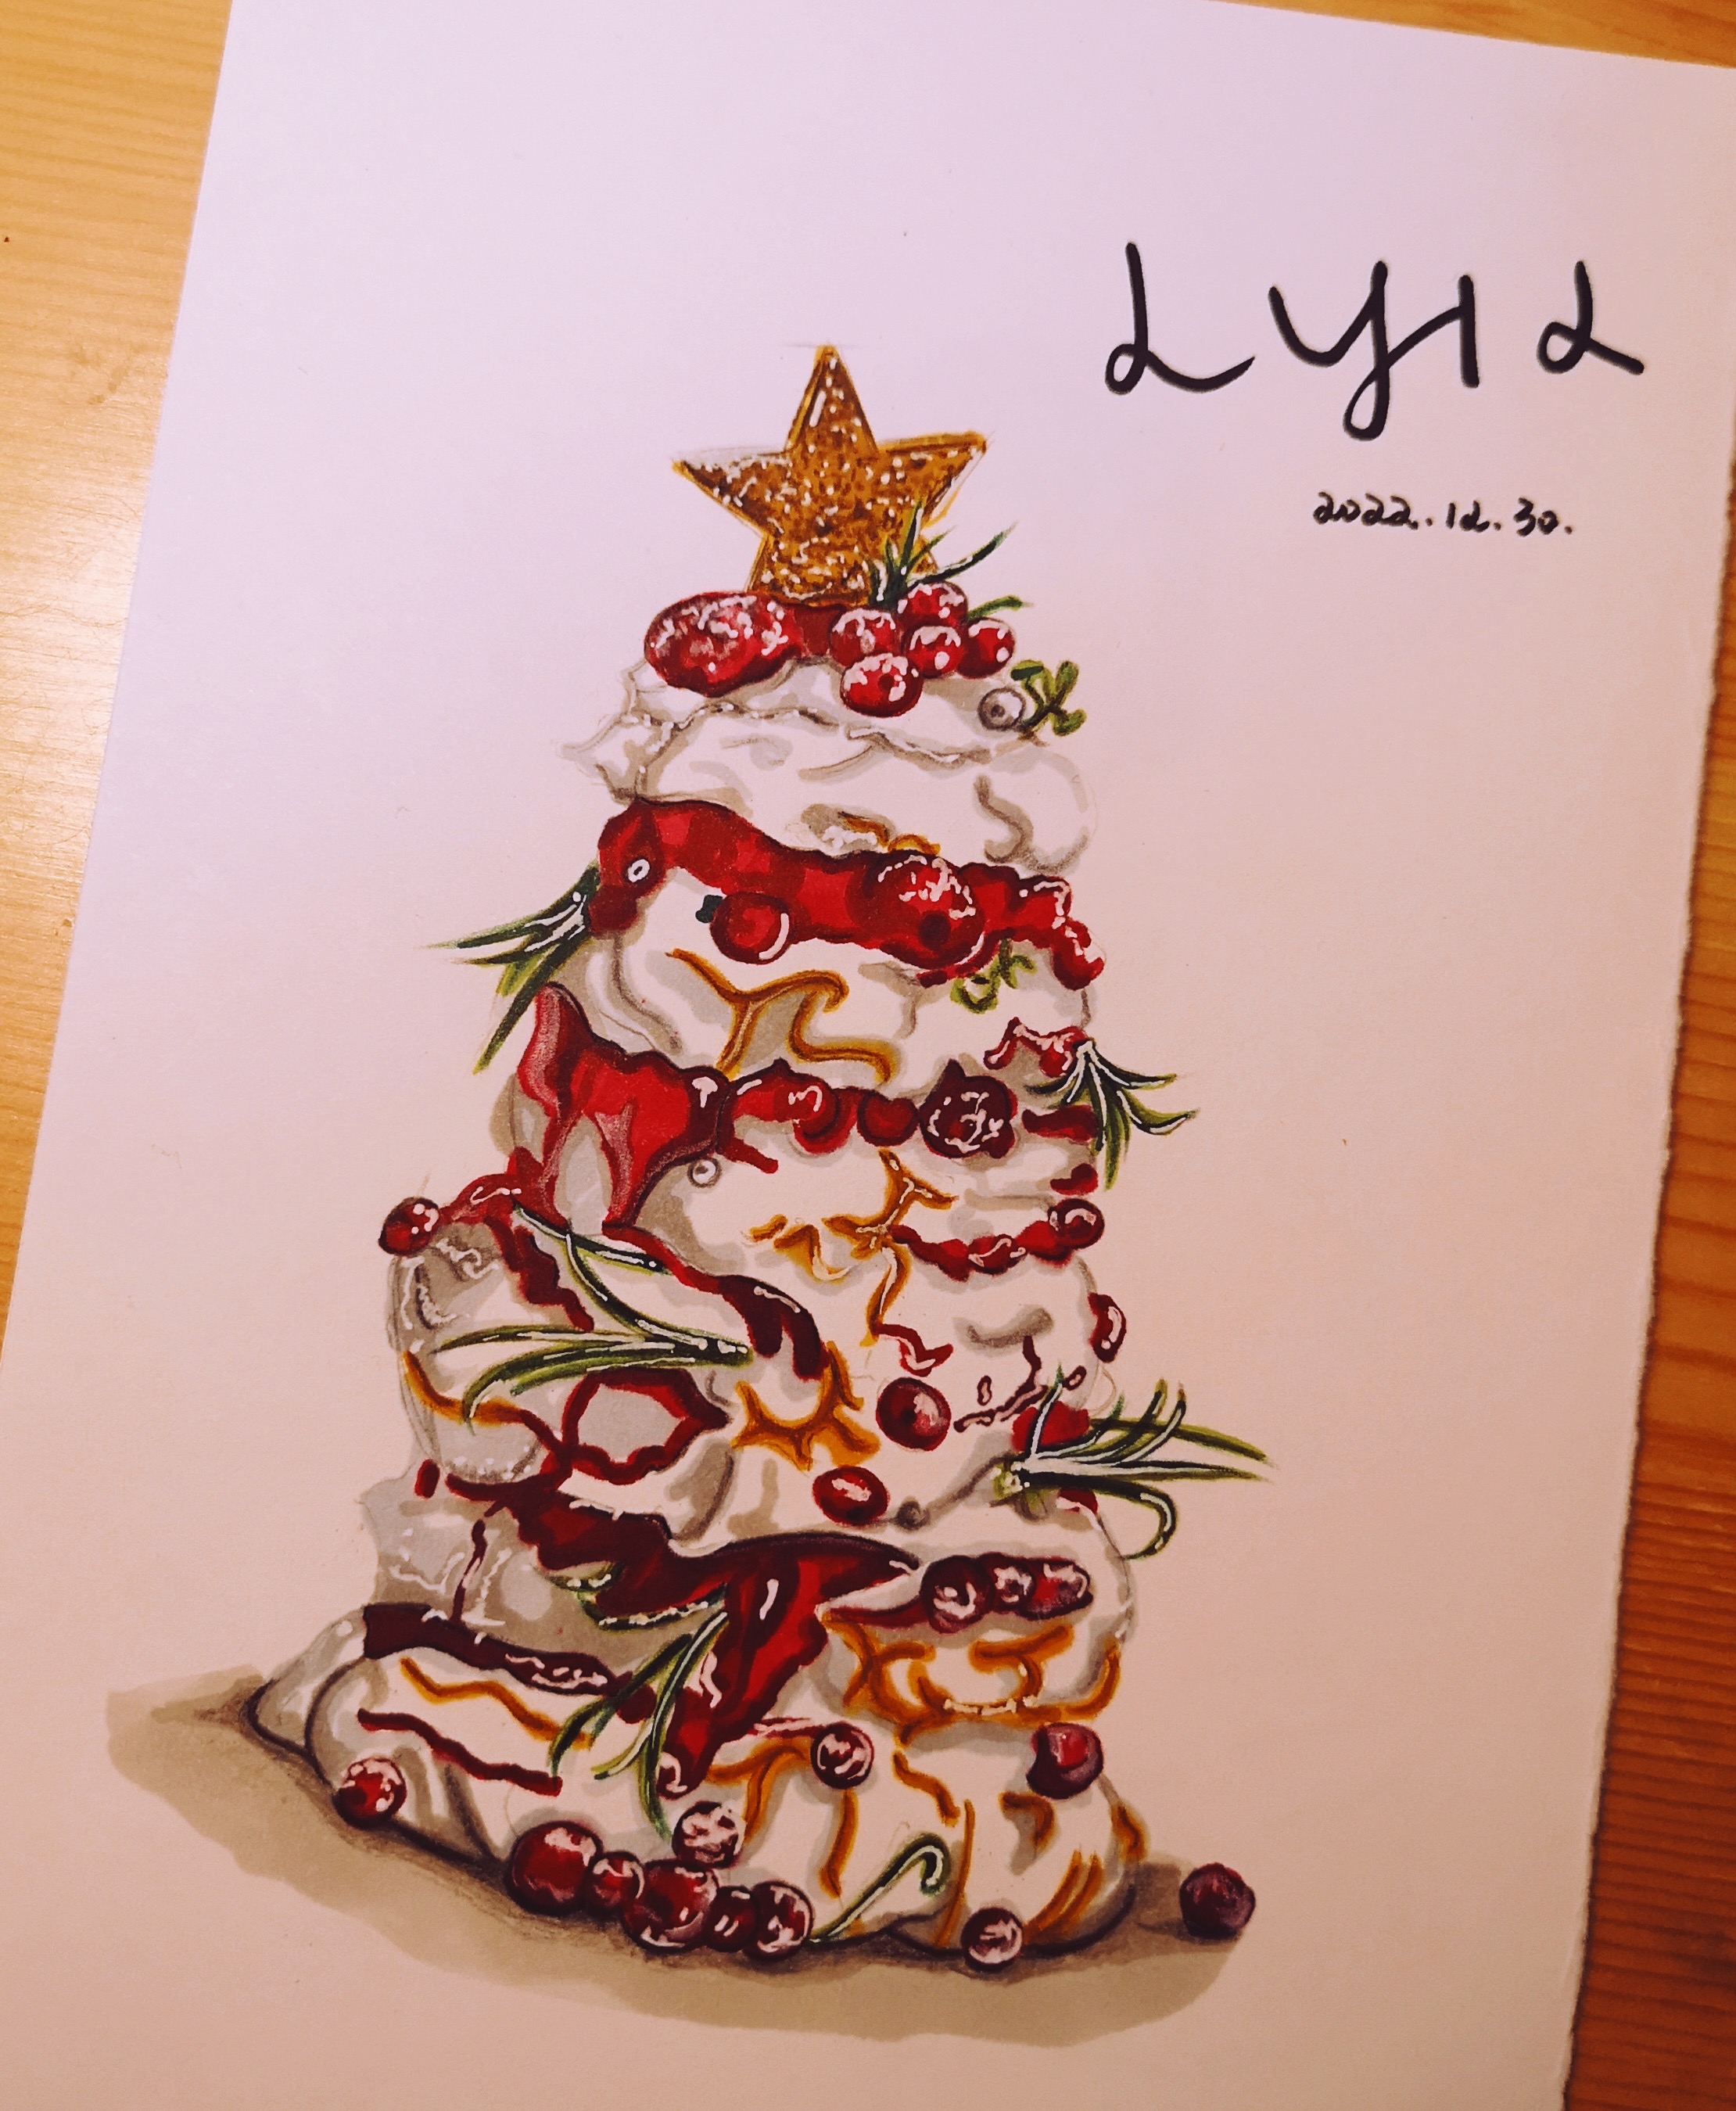 Lyia
2022.12.30.